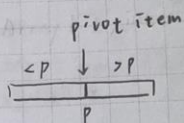 pivot item
<p >p
p